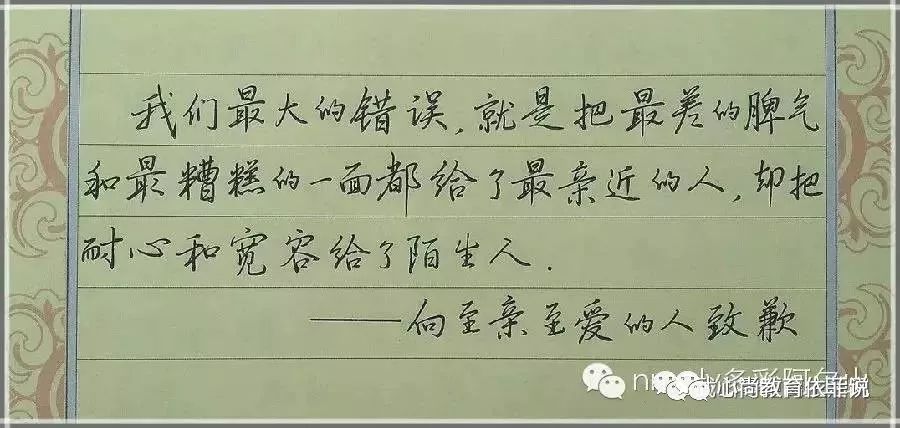 我们最大的错误,就是把最差的脾气
和最糟糕的一面都给了最亲近的人,却把
耐心和宽容给了陌生人.
——向至亲至爱的人致歉
多彩阿尔山
教育